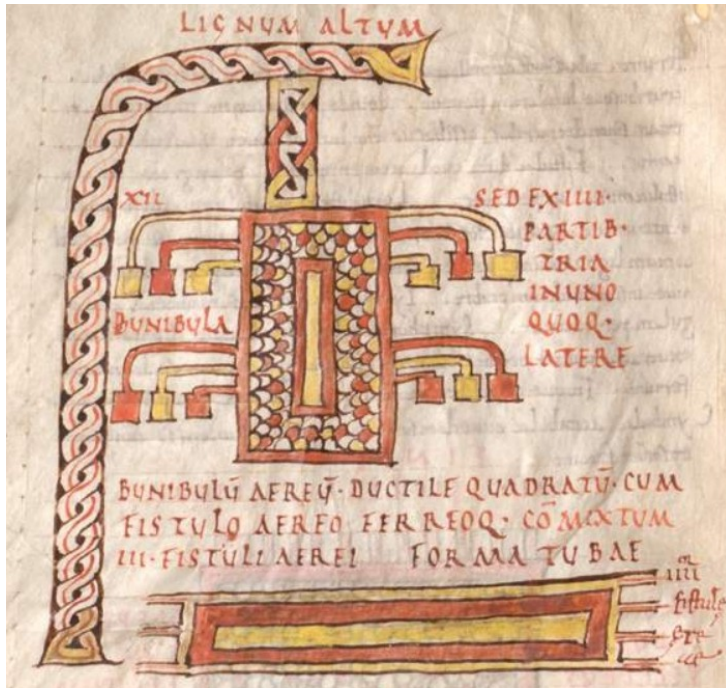 LIGNUM ALTUM
XII
BUNIBULA
SED EX IIII·
PARTIB·
TRIA
INUNO
QUOQ·
LATERE
BUNIBULŪ AEREŪ· DUCTILE QUADRATŪ· CUM
FISTULO AEREO FERREOQ· CŌMIXTUM
III· FISTULI AEREI FORMA TUBAE
IIII
fistulę
ęre